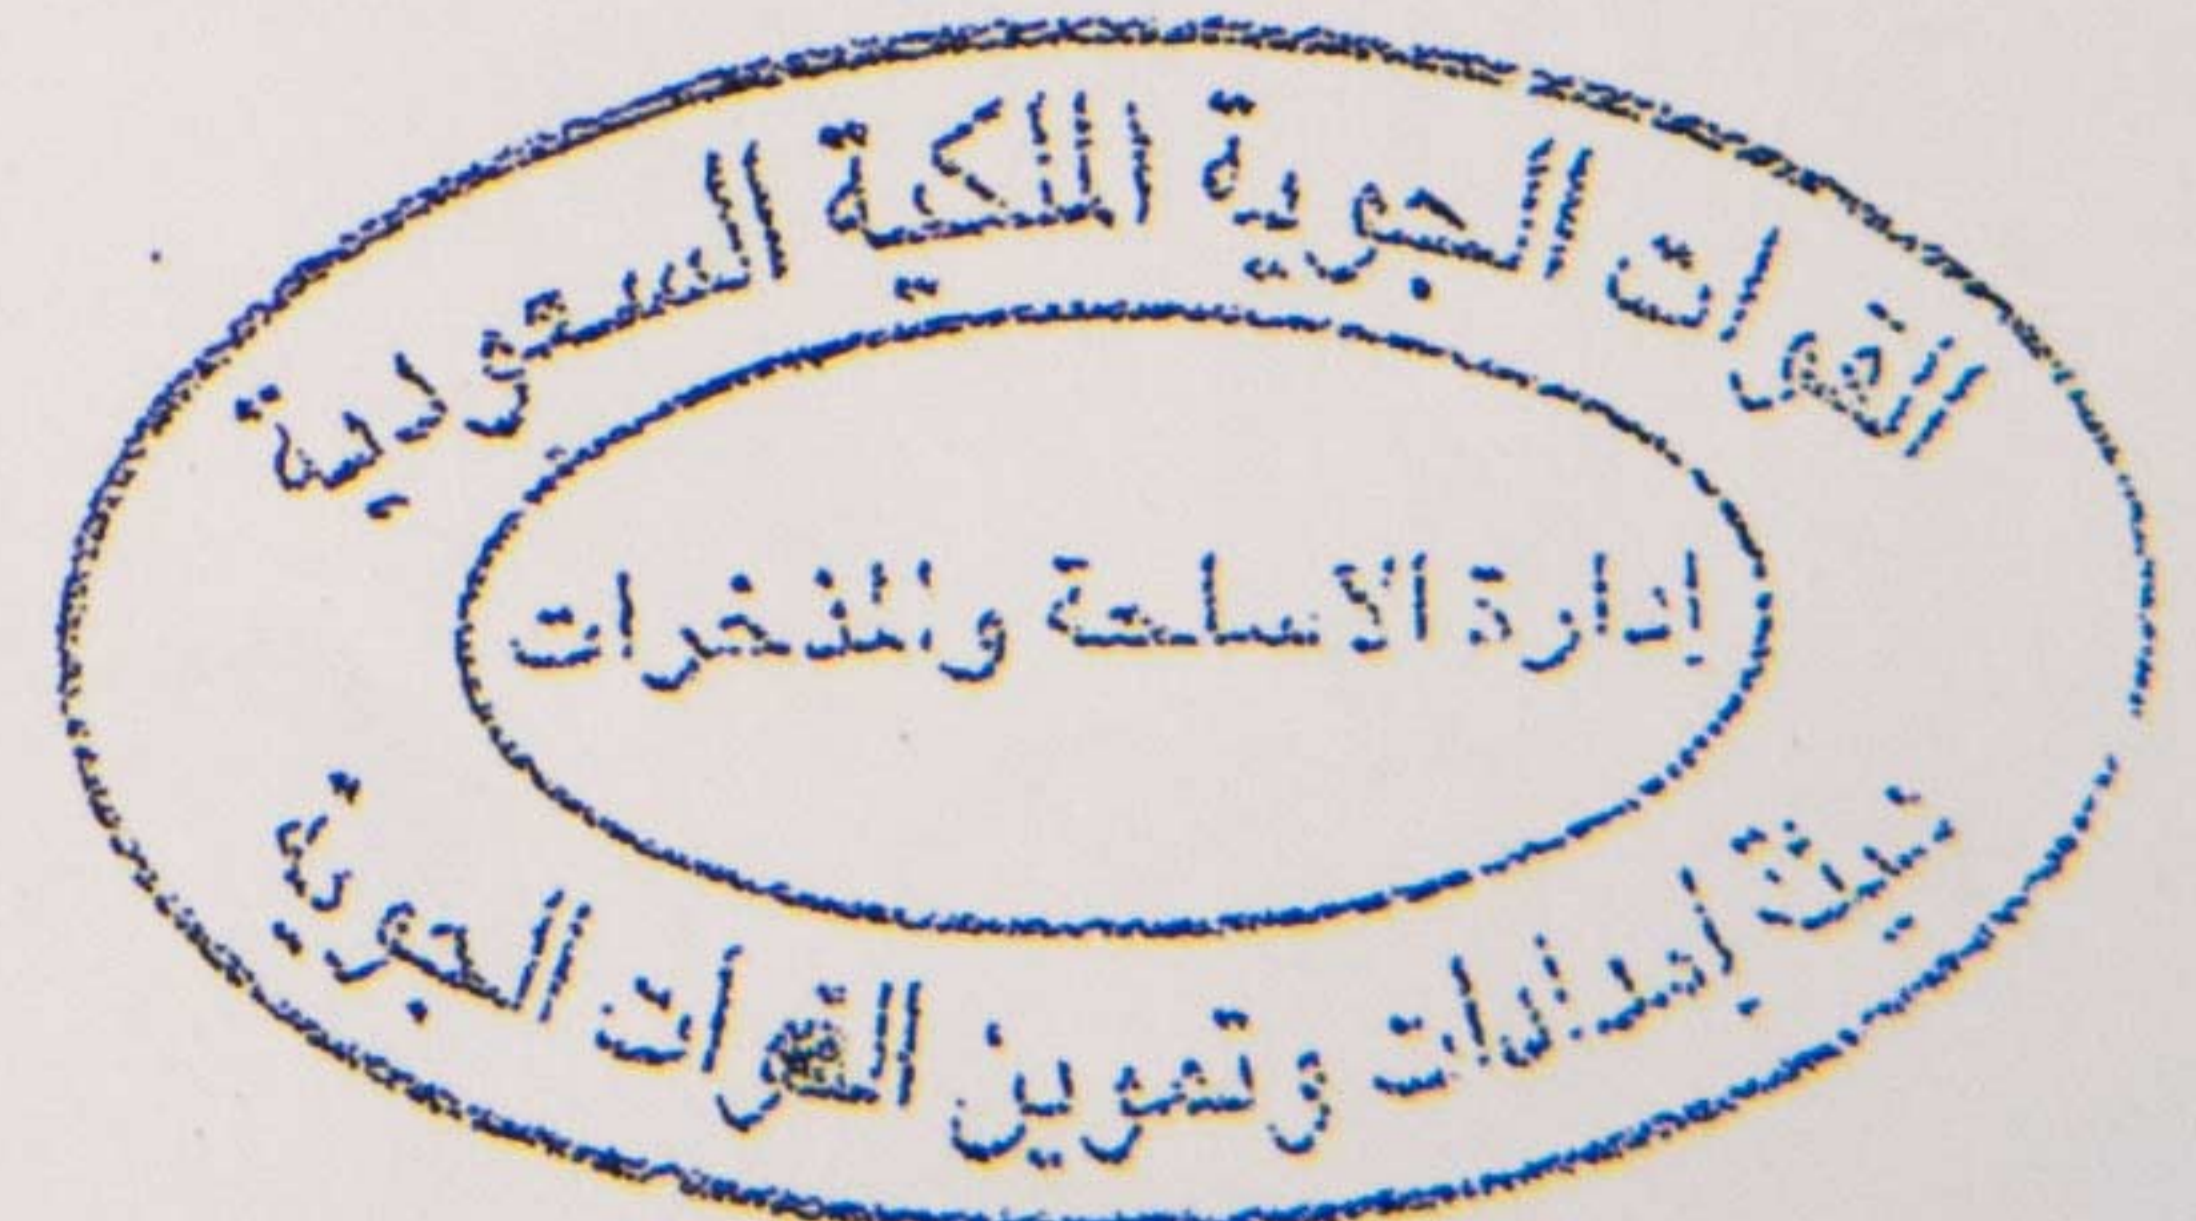 القوات الجوية الملكية السعودية
إدارة الاسلحة والمذخرات
هيئة إمدادات وتموين القوات الجوية